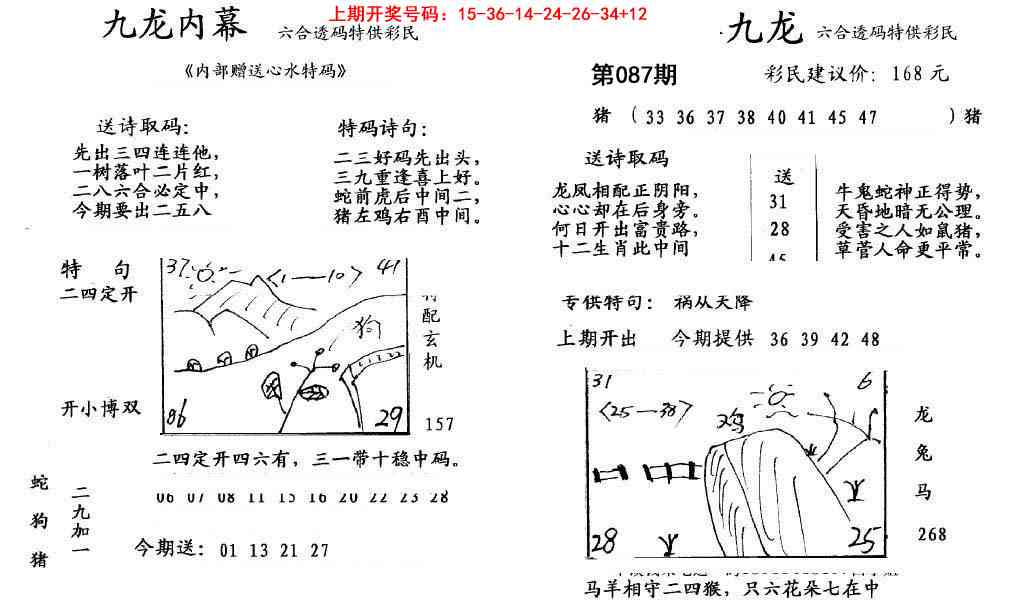 上期开奖号码：15-36-14-24-26-34+12
九龙内幕 六合透码特供彩民
《内部赠送心水特码》
送诗取码：
先出三四连连他，
一树落叶二片红，
二八六合必定中，
今期要出二五八
特码诗句：
二三好码先出头，
三九重逢喜上好。
蛇前虎后中间二，
猪左鸡右酉中间。
特 句
二四定开
开小博双
37 〈1—10〉 41
狗
06 29
配玄机
157
二四定开四六有，三一带十稳中码。
蛇
狗
猪
二九加一
06 07 08 11 15 16 20 22 23 28
今期送：01 13 21 27
·九龙 六合透码特供彩民
第087期 彩民建议价：168元
猪（33 36 37 38 40 41 45 47 ）猪
送诗取码
龙凤相配正阴阳，
心心却在后身旁。
何日开出富贵路，
十二生肖此中间
送
31
28
45
牛鬼蛇神正得势，
天昏地暗无公理。
受害之人如鼠猪，
草菅人命更平常。
专供特句：祸从天降
上期开出 今期提供 36 39 42 48
31 6
〈25—38〉 鸡
28 25
龙
兔
马
268
马羊相守二四猴，只六花朵七在中